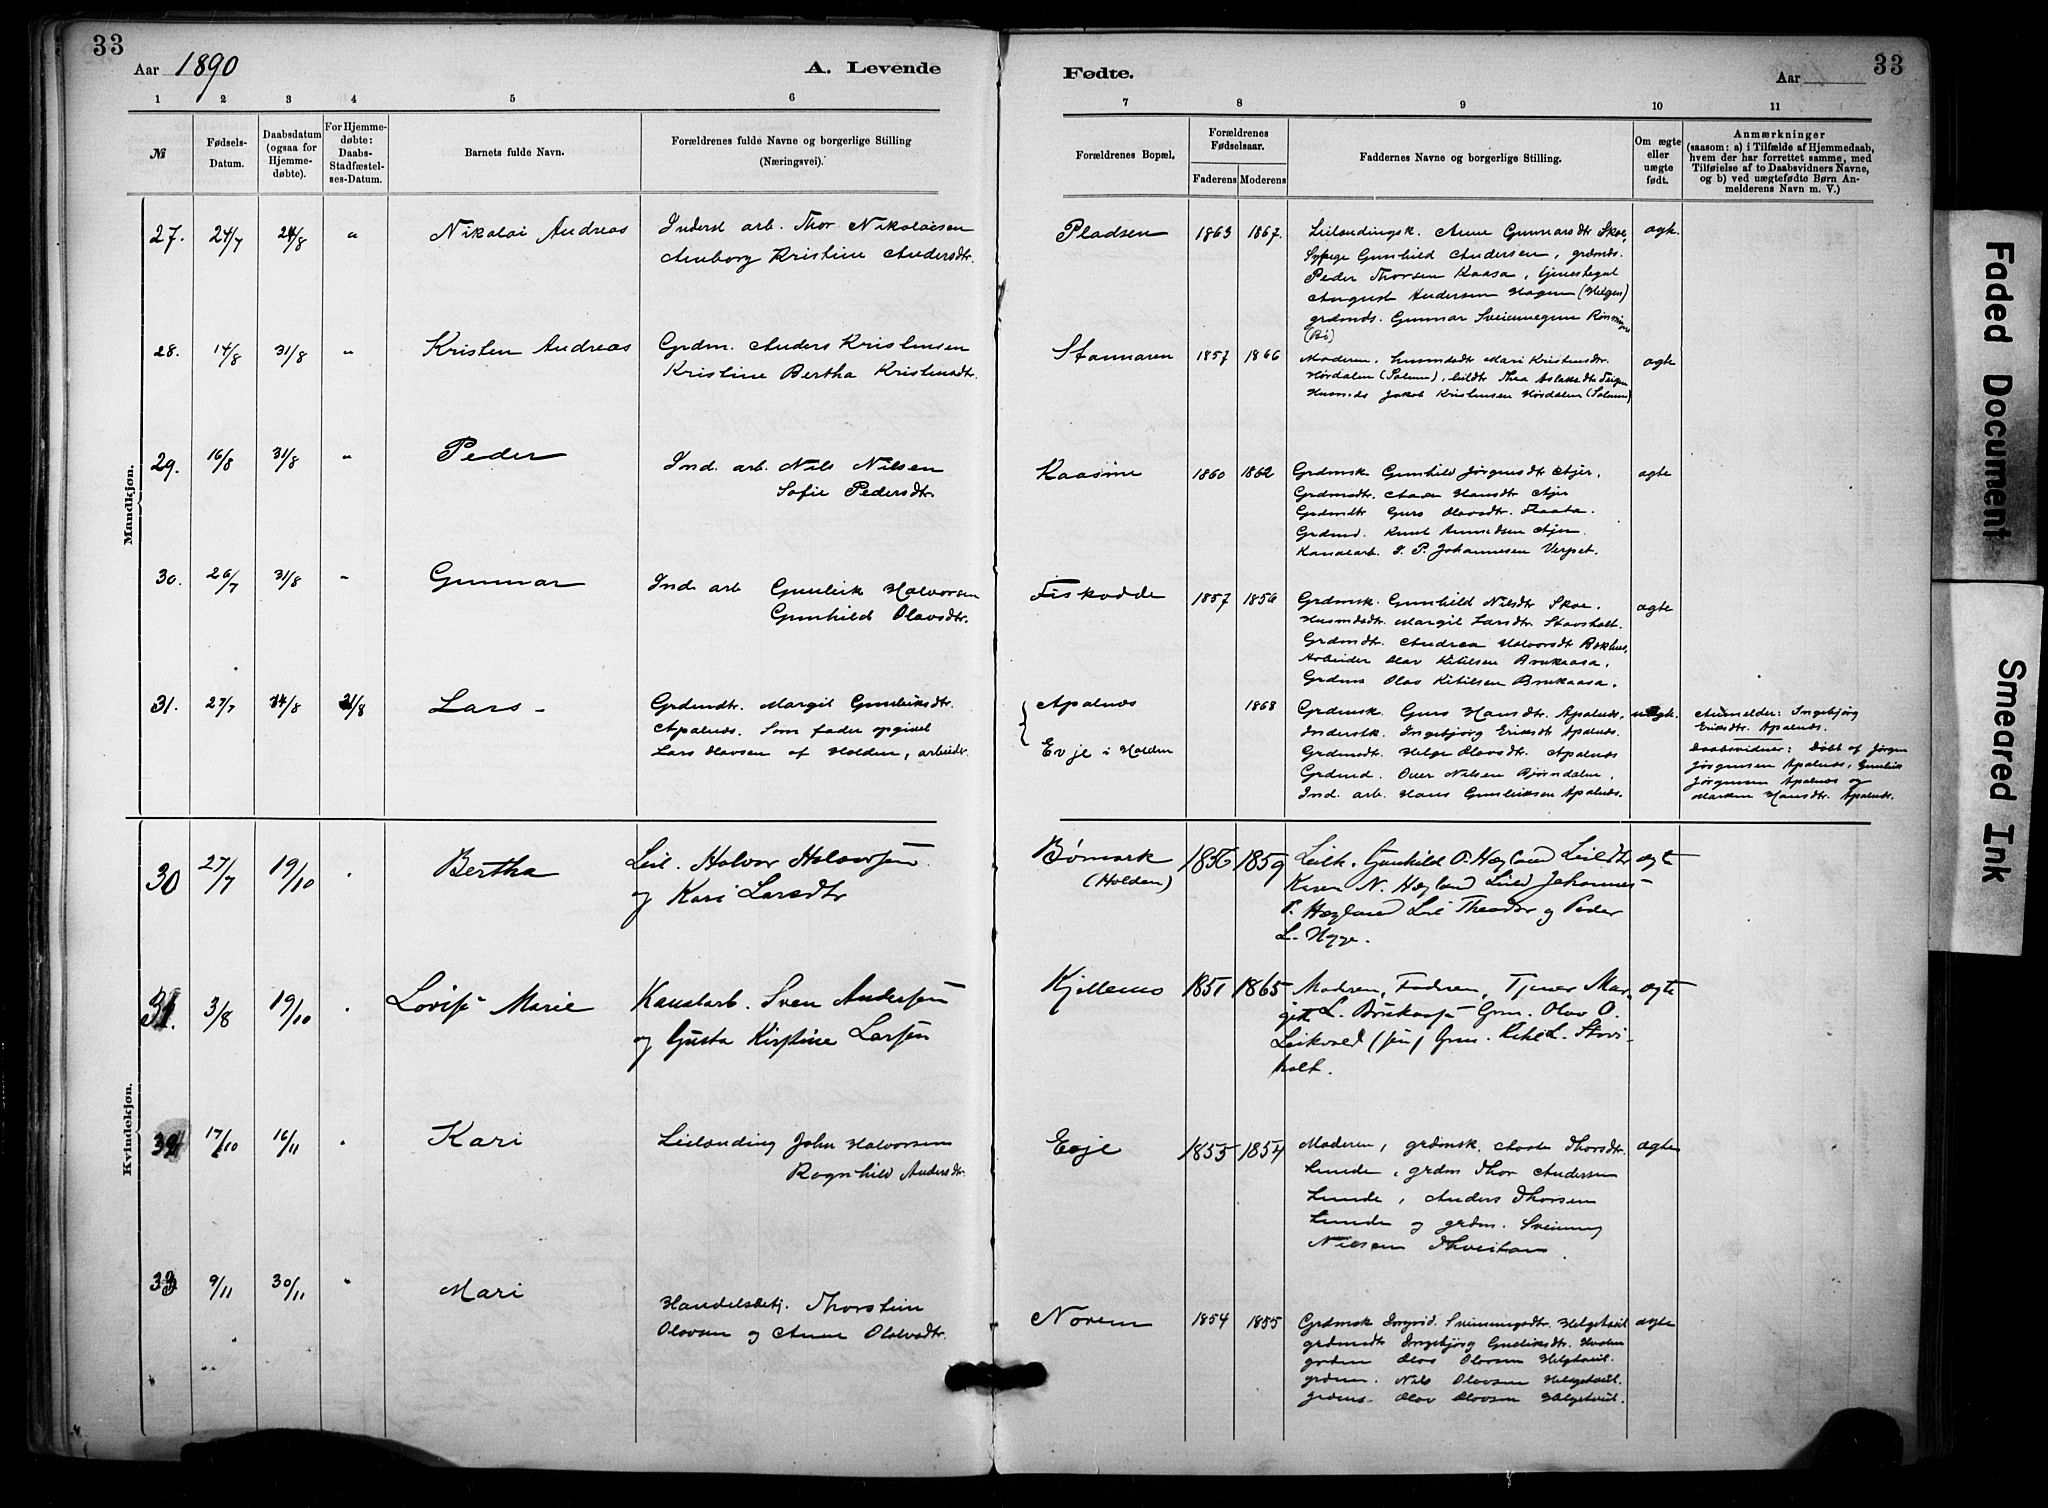 33
Aar 1890
A. Levende
1 2 3 4 5 6
№
Fødsels-Datum.
Daabsdatum (ogsaa for Hjemme-døbte).
For Hjemme-døbte: Daabs-Stadfæstel-ses-Datum.
Barnets fulde Navn.
Forældrenes fulde Navne og borgerlige Stilling
(Næringsvei).
Mandkjøn.
27. 24/7 24/8 " Nikolai Andreas
Inderst arb. Thor Nikolaisen
Amborg Kristine Andersdtr.
28. 14/8 31/8 " Kristen Andreas
Grdm. Anders Kristensen
Kristine Bertha Kristensdtr.
29. 16/8 31/8 " Peder
Ind. arb. Nils Nilsen
Sofie Pedersdtr.
30. 26/7 31/8 " Gunnar
Ind. arb Gunleik Halvorsen
Gunhild Olavsdtr.
31. 27/7 31/8 Lars -
Grdmdtr. Margit Gunleiksdtr.
Apalnæs. Som fader opgivet
Lars Olavsen af Holden, arbeider.
Kvindekjøn.
30 27/7 19/10 " Bertha
Leil. Halvor Halvorsen
og Kari Larsdtr
31. 3/8 19/10 " Lovise Marie
Kanalarb. Sven Andersen
og Gusta Kirstine Larsen
32 17/10 16/11 " Kari
Leilænding John Halvorsen
Ragnhild Andersdtr.
33 9/11 30/11 " Mari
Handelsbetj. Thorstein
Olavsen og Anne Olavsdtr.
33
Fødte.
Aar
7 8 9 10 11
Forældrenes Bopæl.
Forældrenes Fødselsaar.
Faderens Moderens
Faddernes Navne og borgerlige Stilling.
Om ægte eller uægte født.
Anmærkninger
(saasom: a) i Tilfælde af Hjemmedaab,
hvem der har forrettet samme, med
Tilføielse af to Daabsvidners Navne,
og b) ved uægtefødte Børn An-
melderens Navn m. V.)
Pladsen 1863 1867.
Leilændingsk. Anne Gunnarsdtr Skoe,
Sypige Gunhild Andersen, grdmds.
Peder Thorsen Kaasa, tjenestegut
August Andersen Hagen (Helgen)
grdmds. Gunnar Sveinungsen
(Bø)
ægt.
Stamnaren 1857 1866
Moderen, husmdsdtr Mari Kristensdtr.
Hørdalen (Solum), leildtr Thea Aslaksdtr
Husmds Jakob Kristensen Hørdalen (Solum)
ægte
Kaasene 1860 1862
Grdmsk. Gunhild Jørgensdtr
Grdmdtr. Hansdtr
Grdmdtr Guro Olavsdtr.
Grdmd. Knut
Kanalarb. I. P. Johannesen Verpet.
ægte
Fiskodde 1857 1856
Grdmsk. Gunhild Nilsdtr Skoe.
Husmdsdtr. Margit Larsdtr. Stavsholt.
Grdmdtr. Andrea Halvorsdtr
Arbeider Olav Kittilsen Brukaasa.
Grdms Olav Kittilsen Brukaasa.
ægte
Apalnæs
Evje i Holden
1868
Grdmsk. Guro Hansdtr. Apalnæs.
Inderstk. Ingebjørg Eriksdtr Apalnæs.
Grdmdtr. Helge Olavsdtr. Apalnæs
Grdmd. Over Nilsen Bjørndalen,
Ind. arb. Hans Gunleiksen Apalnæs.
uægt.
Anmelder: Ingebjørg
Eriksdtr. Apalnæs.
Daabsvidner: Døbt af Jørgen
Jørgensen Apalnæs, Gunleik
Jørgensen Apalnæs og
Maren Hansdtr. Apalnæs.
Bømark
(Holden)
1856 1859
Leilk. Gunhild P. Høgland Leildtr
Karen N. Høgland Leild Johannes
P. Høgland Leil Theodor og Peder
L. Hegge.
ægte
Kjellemo 1851 1865
Modren, Fadren, Tjener Mar-
git L. Brukaasa Grm. Olav O.
Leikvold (sen) Grm. Kittil L. Stavs-
holt.
ægte
Evje 1855 1854
Moderen, grdmsk. Aaste Thorsdtr.
Lunde, grdm Thor Andersen
Lunde, Anders Thorsen
Lunde og grdm. Sveinung
Nilsen Thveitan.
ægte
Noren 1854 1855
Grdmsk Ingrid Sveinungsdtr. Helgetveit
grdmsdtr Ingebjørg Gunleiksdtr.
grdm Olav Olavsen Helgetveit.
grdm. Nils Olavsen Helgetveit.
grdms. Olav Olavsen Helgetveit.
ægte
Faded Document
Smeared Ink